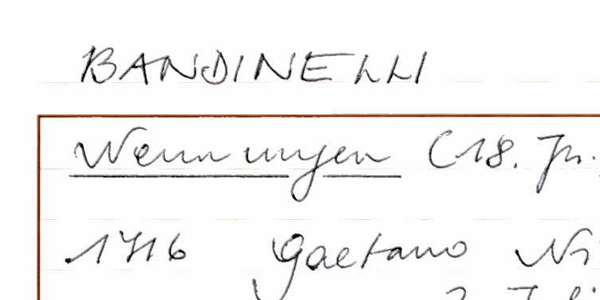 BANDINELLI
Nennungen (18. Jh.
1716 Gaetano Ni